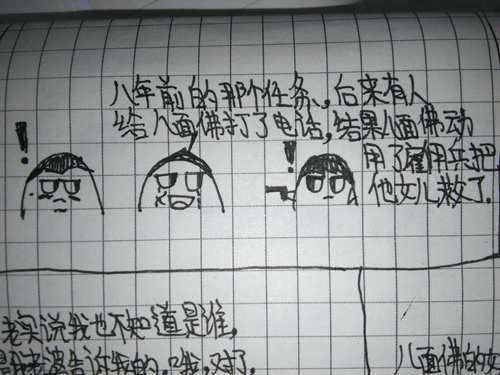 八年前的那个任务、后来有人
给八面佛打了电话,结果八面佛动
用了雇用兵把
他女儿救了.
!
!
老实说我也不知道是谁,
是我老婆告诉我的,哦,对了,
八面佛的女